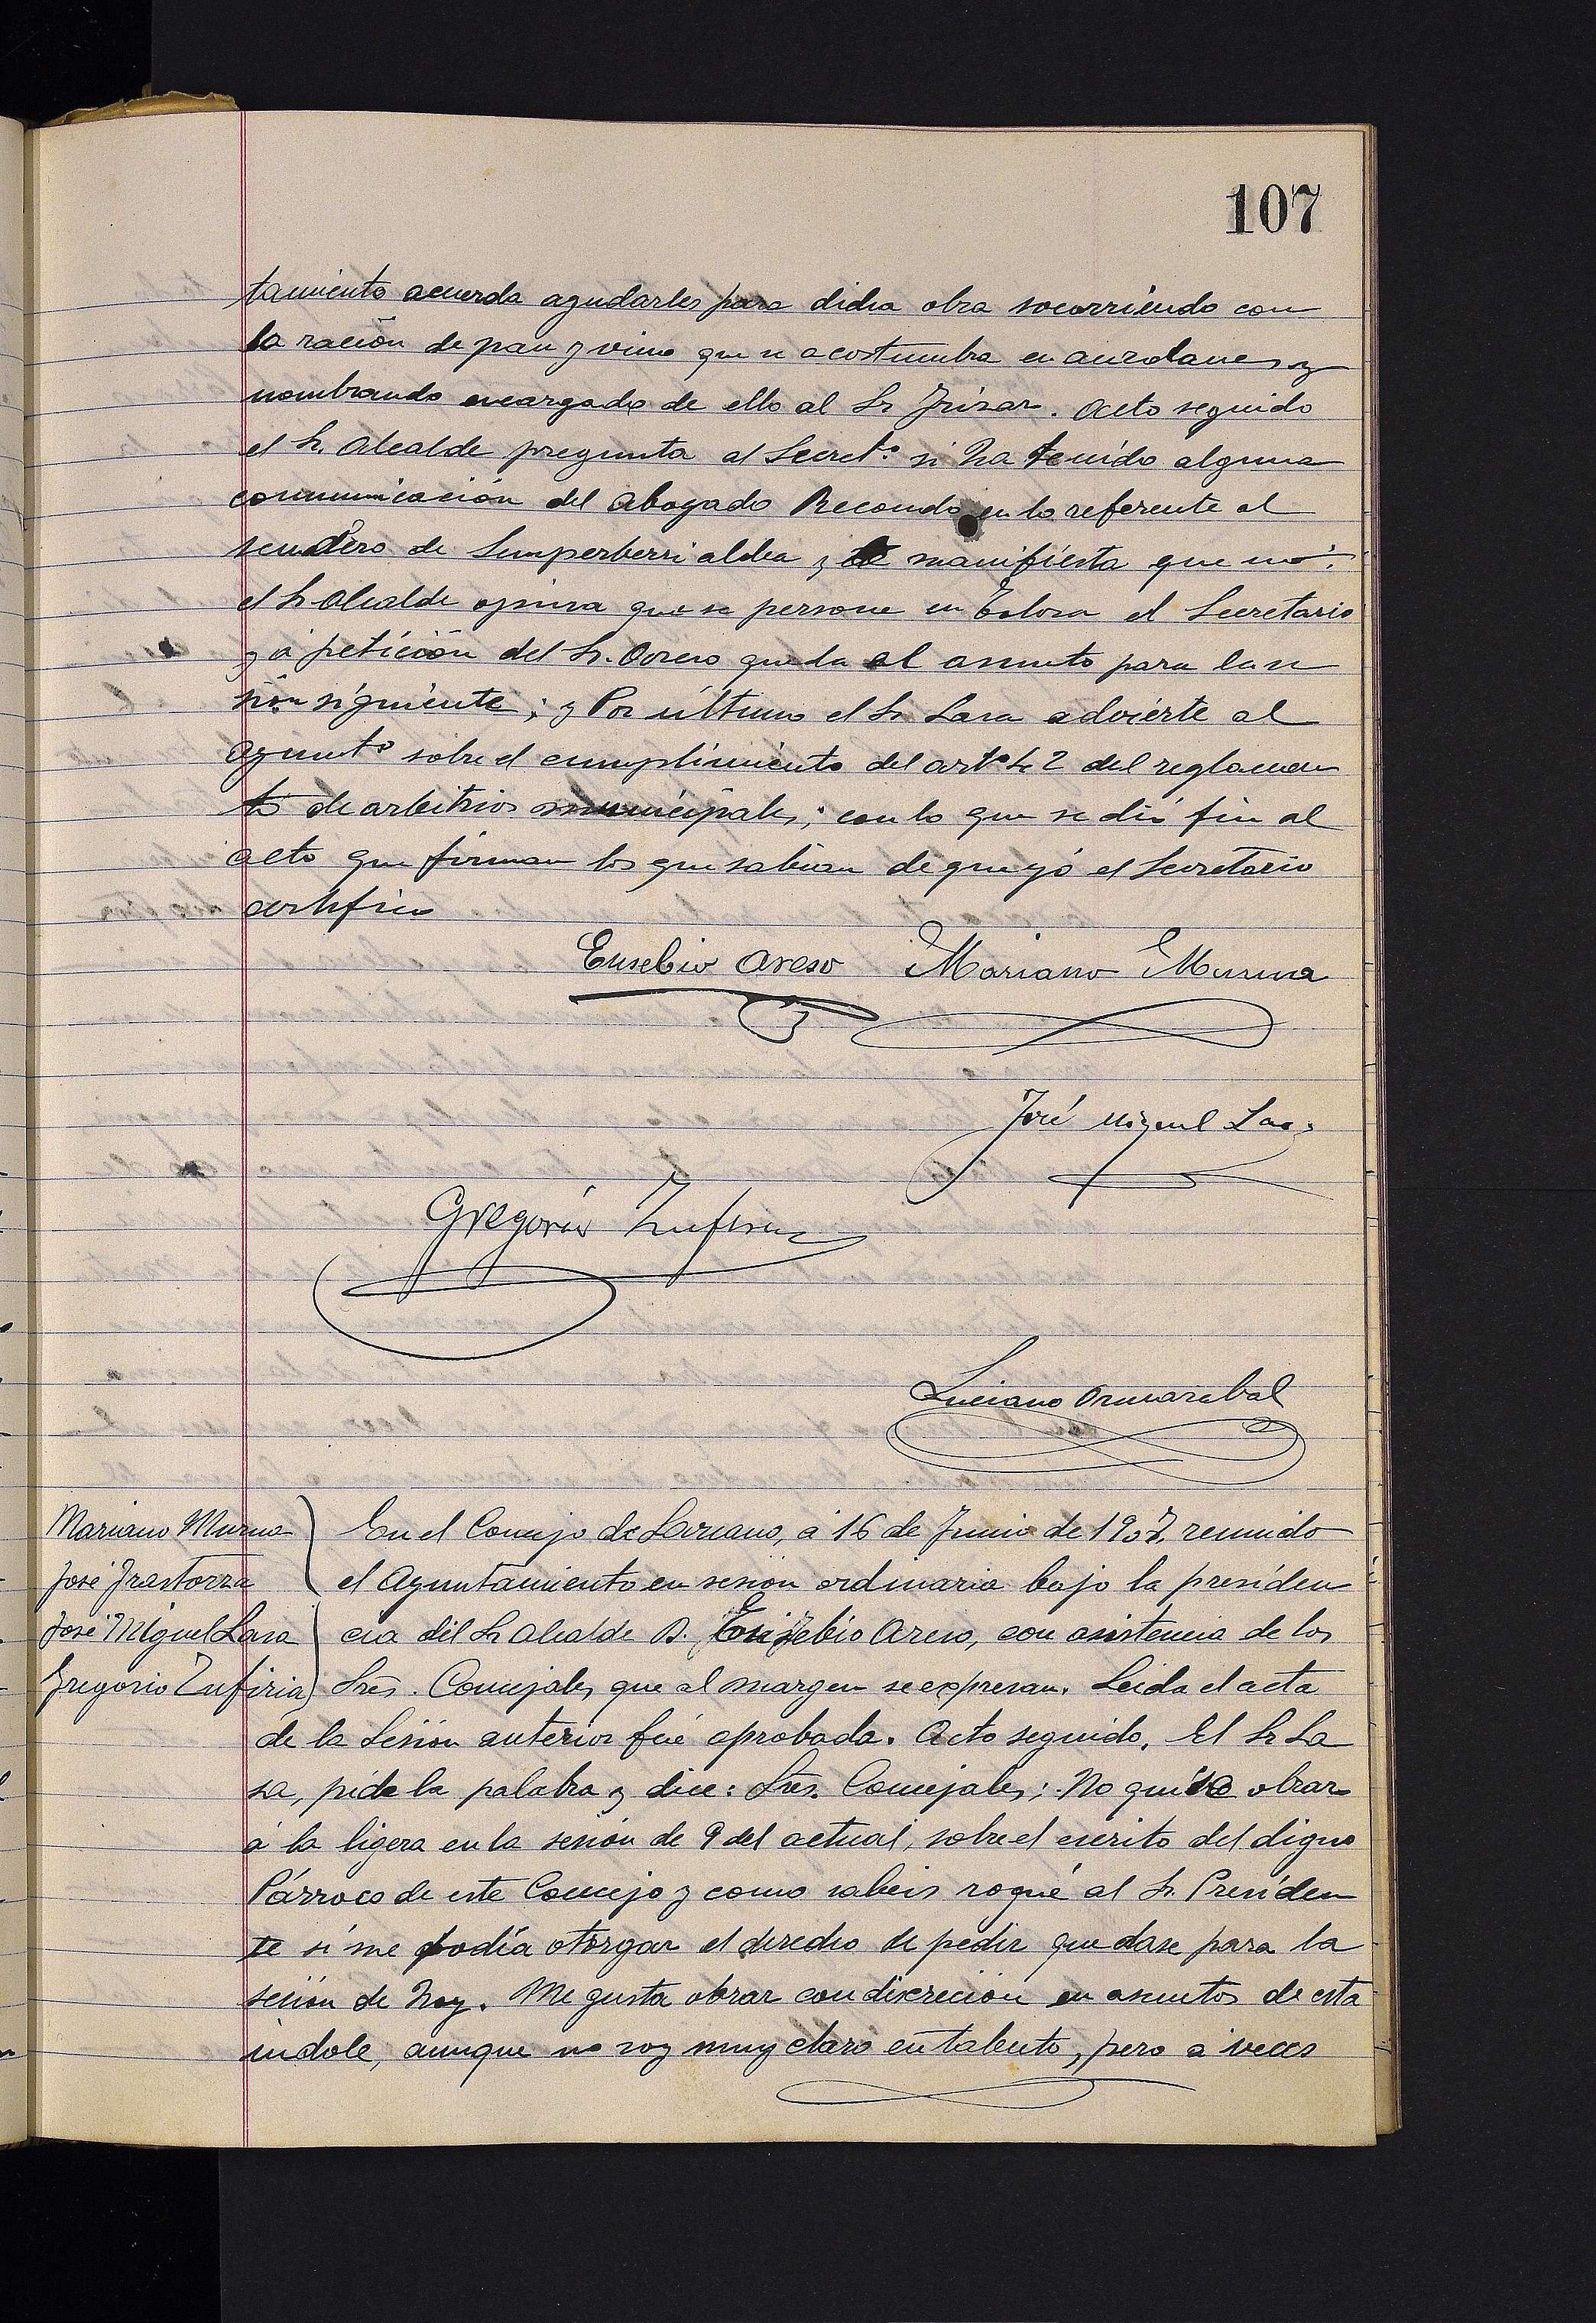 107
tamiento acuerda ayudarles para dicha obra socorriendo con
la ración de pan y vino que se acostumbra en auzolanes y
nombrando encargado de ello al Sr Irizar. Acto seguido
el Sr. Alcalde pregunta al Secret.º si ha tenido alguna
comunicación del abogado Recondo en lo referente al
sendero de Semperberri aldea y manifiesta que no:
el Sr Alcalde opina que se persone en Tolosa el Secretario
y á petición del Sr. Areso queda el asunto para la se
sión siguiente; y Por último el Sr Lasa advierte al
Ayuntº sobre el cumplimiento del artº 42 del reglamen
to de arbitrios municipales; con lo que se dió fin al
acto que firman los que sabian de que yó el Secretario
certifico
Eusebio Areso Mariano Murua
José Miguel Lasa
Gregorio Zufiria
Luciano Ormazabal
Mariano Murua
José Irastorza
José Miguel Lasa
Gregorio Zufiria
En el Concejo de Larrano, á 16 de Junio de 1907, reunido
el Ayuntamiento en sesión ordinaria bajo la presiden
cia del Sr Alcalde D. Eusebio Areso, con asistencia de los
Sres. Concejales que al margen se expresan. Leida el acta
de la Sesión anterior fué aprobada. Acto seguido. El Sr La
sa, pide la palabra y dice: Sres. Concejales; No quise obrar
á la ligera en la sesión de 9 del actual, sobre el escrito del digno
Párroco de este Concejo y como sabeis rogué al Sr. Presiden
te si me podía otorgar el derecho de pedir quedase para la
sesión de hoy. Me gusta obrar con discreción en asuntos de esta
indole, aunque no soy muy claro en talento, pero a veces